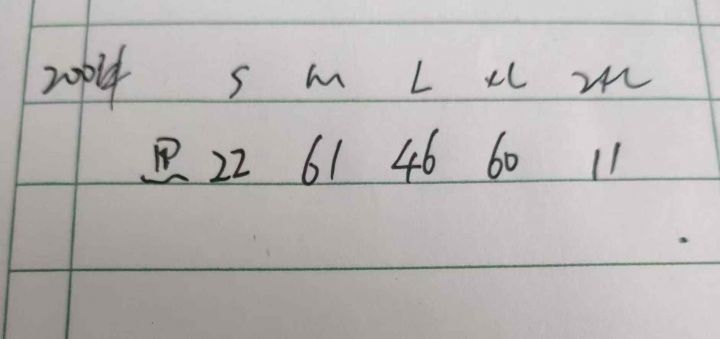 200件 S M L XL 2XL
黑 22 61 46 60 11